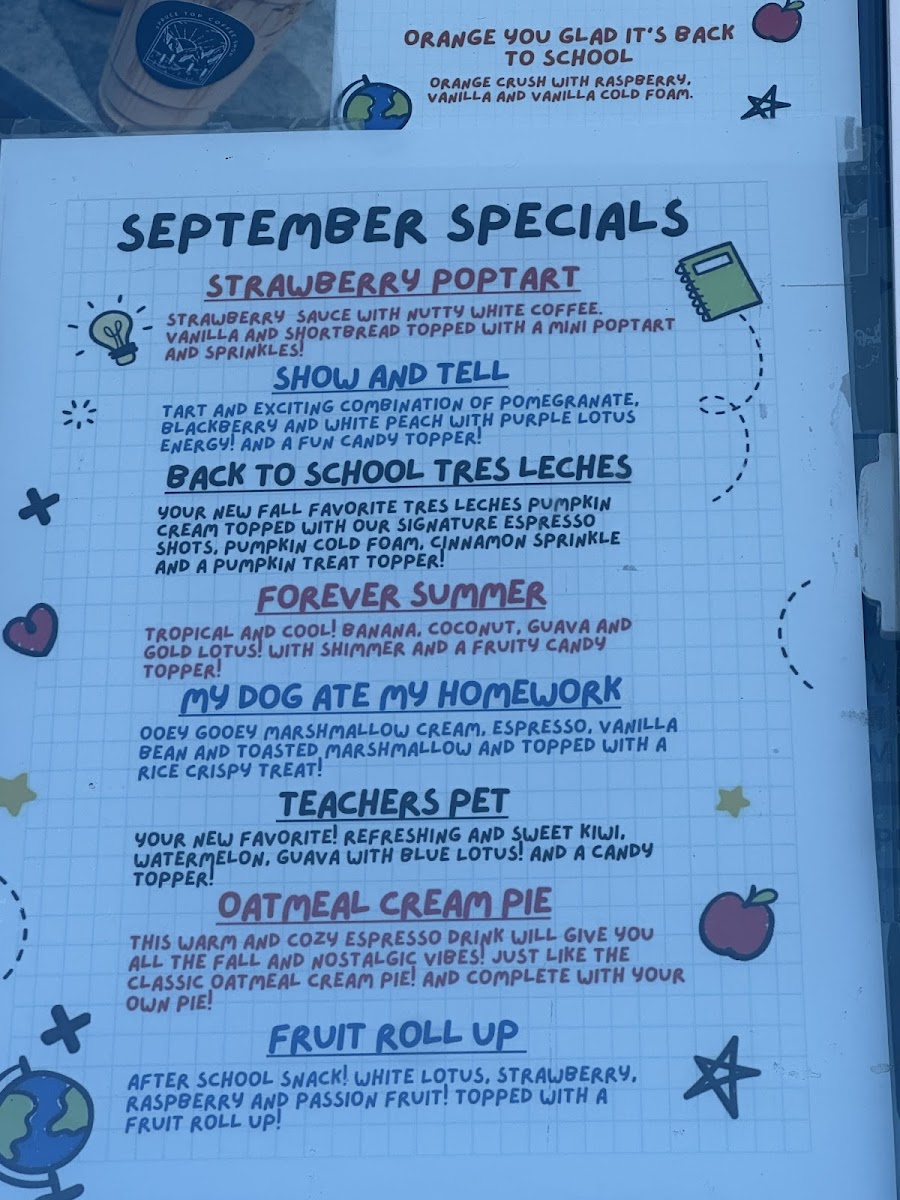 ORANGE YOU GLAD IT'S BACK
TO SCHOOL
ORANGE CRUSH WITH RASPBERRY,
VANILLA AND VANILLA COLD FOAM.
SEPTEMBER SPECIALS
STRAWBERRY POPTART
STRAWBERRY SAUCE WITH NUTTY WHITE COFFEE.
VANILLA AND SHORTBREAD TOPPED WITH A MINI POPTART
AND SPRINKLES!
SHOW AND TELL
TART AND EXCITING COMBINATION OF POMEGRANATE,
BLACKBERRY AND WHITE PEACH WITH PURPLE LOTUS
ENERGY! AND A FUN CANDY TOPPER!
BACK TO SCHOOL TRES LECHES
YOUR NEW FALL FAVORITE TRES LECHES PUMPKIN
CREAM TOPPED WITH OUR SIGNATURE ESPRESSO
SHOTS, PUMPKIN COLD FOAM, CINNAMON SPRINKLE
AND A PUMPKIN TREAT TOPPER!
FOREVER SUMMER
TROPICAL AND COOL! BANANA, COCONUT, GUAVA AND
GOLD LOTUS! WITH SHIMMER AND A FRUITY CANDY
TOPPER!
MY DOG ATE MY HOMEWORK
OOEY GOOEY MARSHMALLOW CREAM, ESPRESSO, VANILLA
BEAN AND TOASTED MARSHMALLOW AND TOPPED WITH A
RICE CRISPY TREAT!
TEACHERS PET
YOUR NEW FAVORITE! REFRESHING AND SWEET KIWI,
WATERMELON, GUAVA WITH BLUE LOTUS! AND A CANDY
TOPPER!
OATMEAL CREAM PIE
THIS WARM AND COZY ESPRESSO DRINK WILL GIVE YOU
ALL THE FALL AND NOSTALGIC VIBES! JUST LIKE THE
CLASSIC OATMEAL CREAM PIE! AND COMPLETE WITH YOUR
OWN PIE!
FRUIT ROLL UP
AFTER SCHOOL SNACK! WHITE LOTUS, STRAWBERRY,
RASPBERRY AND PASSION FRUIT! TOPPED WITH A
FRUIT ROLL UP!